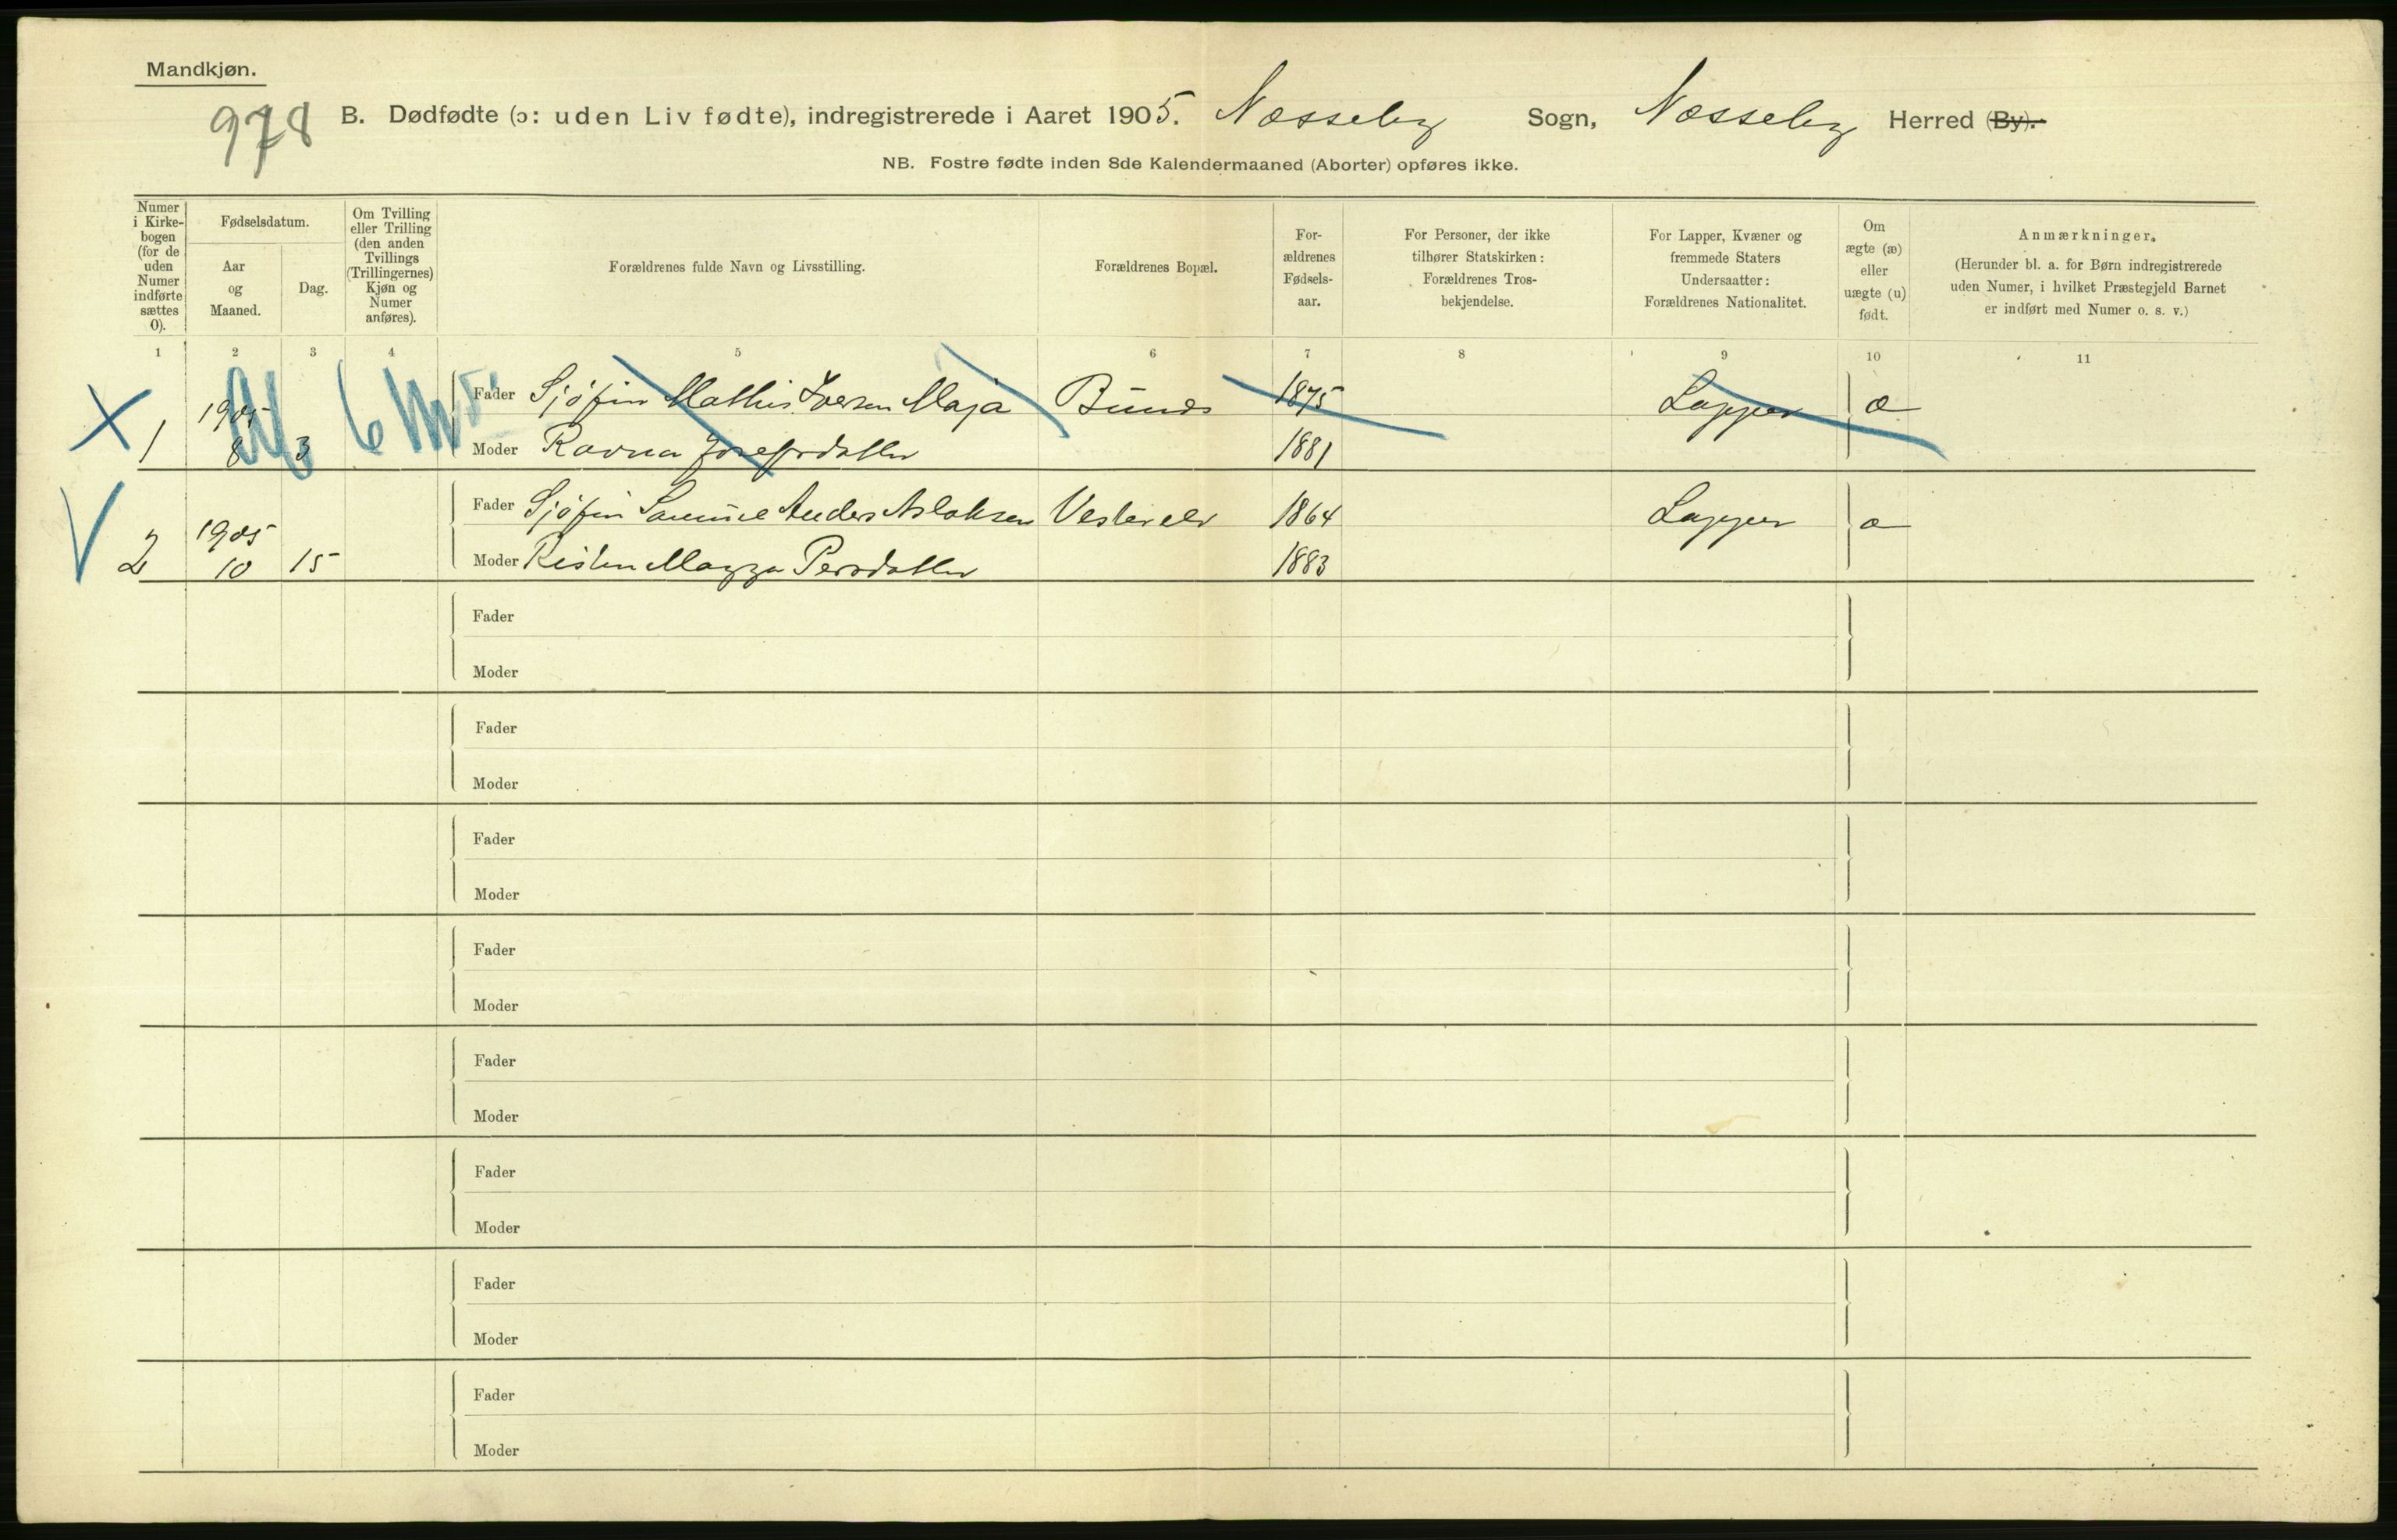 Mandkjøn.
978
B. Dødfødte (ɔ: uden Liv fødte), indregistrerede i Aaret 1905. Næsseby Sogn, Næsseby Herred (By).
NB. Fostre fødte inden 8de Kalendermaaned (Aborter) opføres ikke.
Numer i Kirke-bogen (for de uden Numer indførte sættes 0).
Fødselsdatum.
Aar og Maaned.
Dag.
Om Tvilling eller Trilling (den anden Tvillings (Trillingernes) Kjøn og Numer anføres).
Forældrenes fulde Navn og Livsstilling.
Forældrenes Bopæl.
For-ældrenes Fødsels-aar.
For Personer, der ikke tilhører Statskirken: Forældrenes Tros-bekjendelse.
For Lapper, Kvæner og fremmede Staters Undersaatter: Forældrenes Nationalitet.
Om ægte (æ) eller uægte (u) født.
Anmærkninger.
(Herunder bl. a. for Børn indregistrerede uden Numer, i hvilket Præstegjeld Barnet er indført med Numer o. s. v.)
1 2 3 4 5 6 7 8 9 10 11
1 1905 8 3 6
Fader Sjøfin Mathis Iversen Maja Bunæs 1875 Lapper æ
Moder Ravna Josefsdatter 1881
2 1905 10 15
Fader Sjøfin Samuel Anders Aslaksen Vesterelv 1864 Lapper æ
Moder Risten Magga Persdatter 1883
Fader
Moder
Fader
Moder
Fader
Moder
Fader
Moder
Fader
Moder
Fader
Moder
Fader
Moder
Fader
Moder